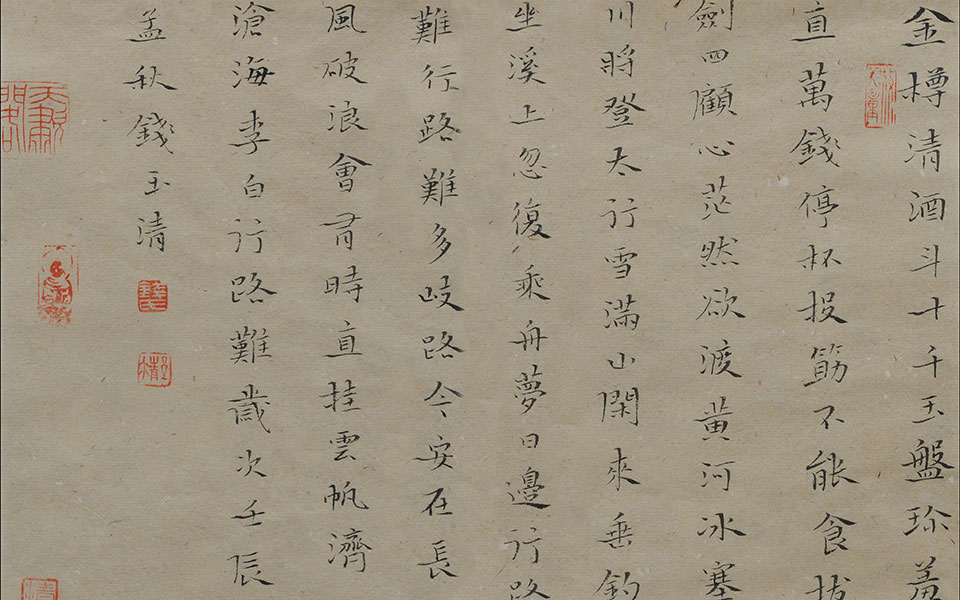 金樽清酒斗十千玉盤珎羞
直萬錢停杯投筯不能食拔
劍四顧心茫然欲渡黄河冰塞
川將登太行雪滿山閑來垂釣
坐溪上忽復乘舟夢日邊行路
難行路難多歧路今安在長
風破浪會有時直挂雲帆濟
滄海李白行路難歲次壬辰
孟秋錢玉清